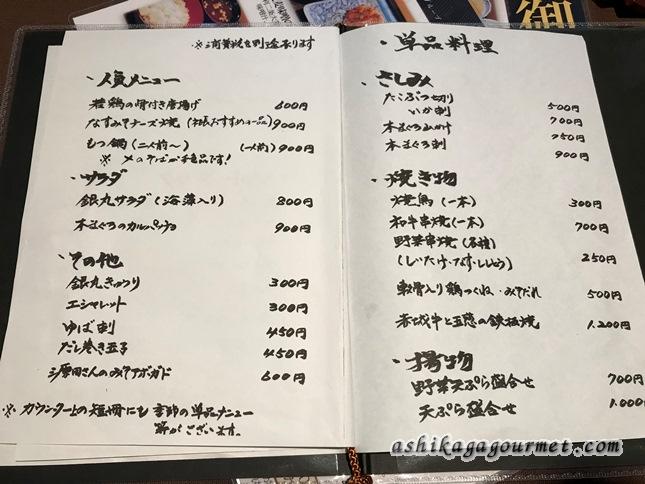 ※消費税を別途承ります
・人気メニュー
若鶏の骨付き唐揚げ 600円
なすみそチーズ焼(社長おすすめの一品) 900円
もつ鍋(二人前〜) (一人前) 900円
※〆のそばが絶品です!
・サラダ
銀丸サラダ(海藻入り) 800円
本まぐろのカルパッチョ 900円
・その他
銀丸きゅうり 300円
エシャレット 300円
ゆば刺 450円
だし巻き玉子 450円
三原田さんのみそアボガド 600円
※カウンター上の短冊にも季節の単品メニュー
等がございます。
・単品料理
・さしみ
たこぶつ切り 500円
いか刺 700円
本まぐろ山かけ 750円
本まぐろ刺 900円
・焼き物
焼鳥(一本) 300円
和牛串焼(一本) 700円
野菜串焼(各種)
(しいたけ・なす・ししとう) 250円
軟骨入り鶏つくね・みそだれ 500円
赤城牛と玉葱の鉄板焼 1.200円
・揚げ物
野菜天ぷら盛合せ 700円
天ぷら盛合せ 1.000円
ashikagagourmet.com